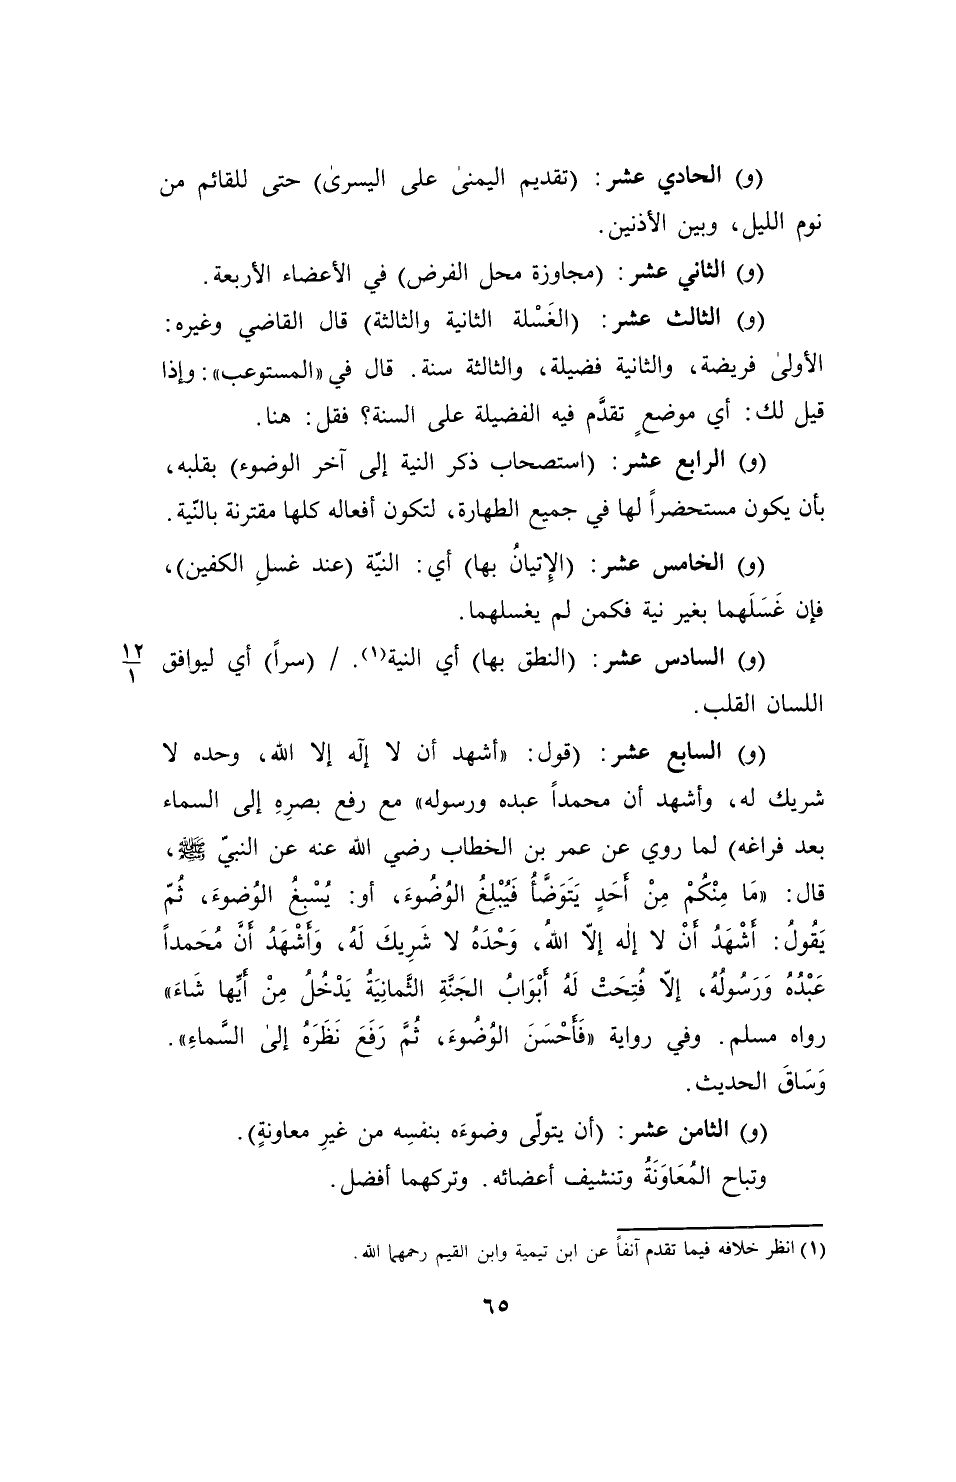 (و) الحادي عشر: (تقديم اليمنىٰ على اليسرىٰ) حتى للقائم من
نوم الليل، وبين الأذنين.
(و) الثاني عشر: (مجاوزة محل الفرض) في الأعضاء الأربعة.
(و) الثالث عشر: (الغَسْلة الثانية والثالثة) قال القاضي وغيره:
الأولىٰ فريضة، والثانية فضيلة، والثالثة سنة. قال في «المستوعب»: وإذا
قيل لك: أي موضعٍ تقدَّم فيه الفضيلة على السنة؟ فقل: هنا.
(و) الرابع عشر: (استصحاب ذكر النية إلى آخر الوضوء) بقلبه،
بأن يكون مستحضراً لها في جميع الطهارة، لتكون أفعاله كلها مقترنة بالنّية.
(و) الخامس عشر: (الإتيانُ بها) أي: النيّة (عند غسلِ الكفين)،
فإن غَسَلَهما بغير نية فكمن لم يغسلهما.
(و) السادس عشر: (النطق بها) أي النية(١). / (سراً) أي ليوافق ١٢/١
اللسان القلب.
(و) السابع عشر: (قول: «أشهد أن لا إلٓه إلا الله، وحده لا
شريك له، وأشهد أن محمداً عبده ورسوله» مع رفع بصرِهِ إلى السماء
بعد فراغه) لما روي عن عمر بن الخطاب رضي الله عنه عن النبيّ ﷺ،
قال: «مَا مِنْكُمْ مِنْ أَحَدٍ يَتَوَضَّأُ فَيُبْلِغُ الوُضُوءَ، أو: يُسْبِغُ الوُضوءَ، ثُمّ
يَقُولُ: أَشْهَدُ أَنْ لا إلٰه إلاّ اللهُ، وَحْدَهُ لا شَرِيكَ لَهُ، وَأَشْهَدُ أَنَّ مُحَمداً
عَبْدُهُ وَرَسُولُهُ، إلاّ فُتِحَتْ لَهُ أَبْوَابُ الجَنَّةِ الثَّمانِيَةُ يَدْخُلُ مِنْ أَيِّها شَاءَ»
رواه مسلم. وفي رواية «فَأَحْسَنَ الوُضُوءَ، ثُمَّ رَفَعَ نَظَرَهُ إلىٰ السَّماءِ».
وَسَاقَ الحديث.
(و) الثامن عشر: (أن يتولّى وضوءَه بنفسِه من غيرِ معاونةٍ).
وتباح المُعَاوَنَةُ وتنشيف أعضائه. وتركهما أفضل.
(١) انظر خلافه فيما تقدم آنفاً عن ابن تيمية وابن القيم رحمهما الله.
٦٥